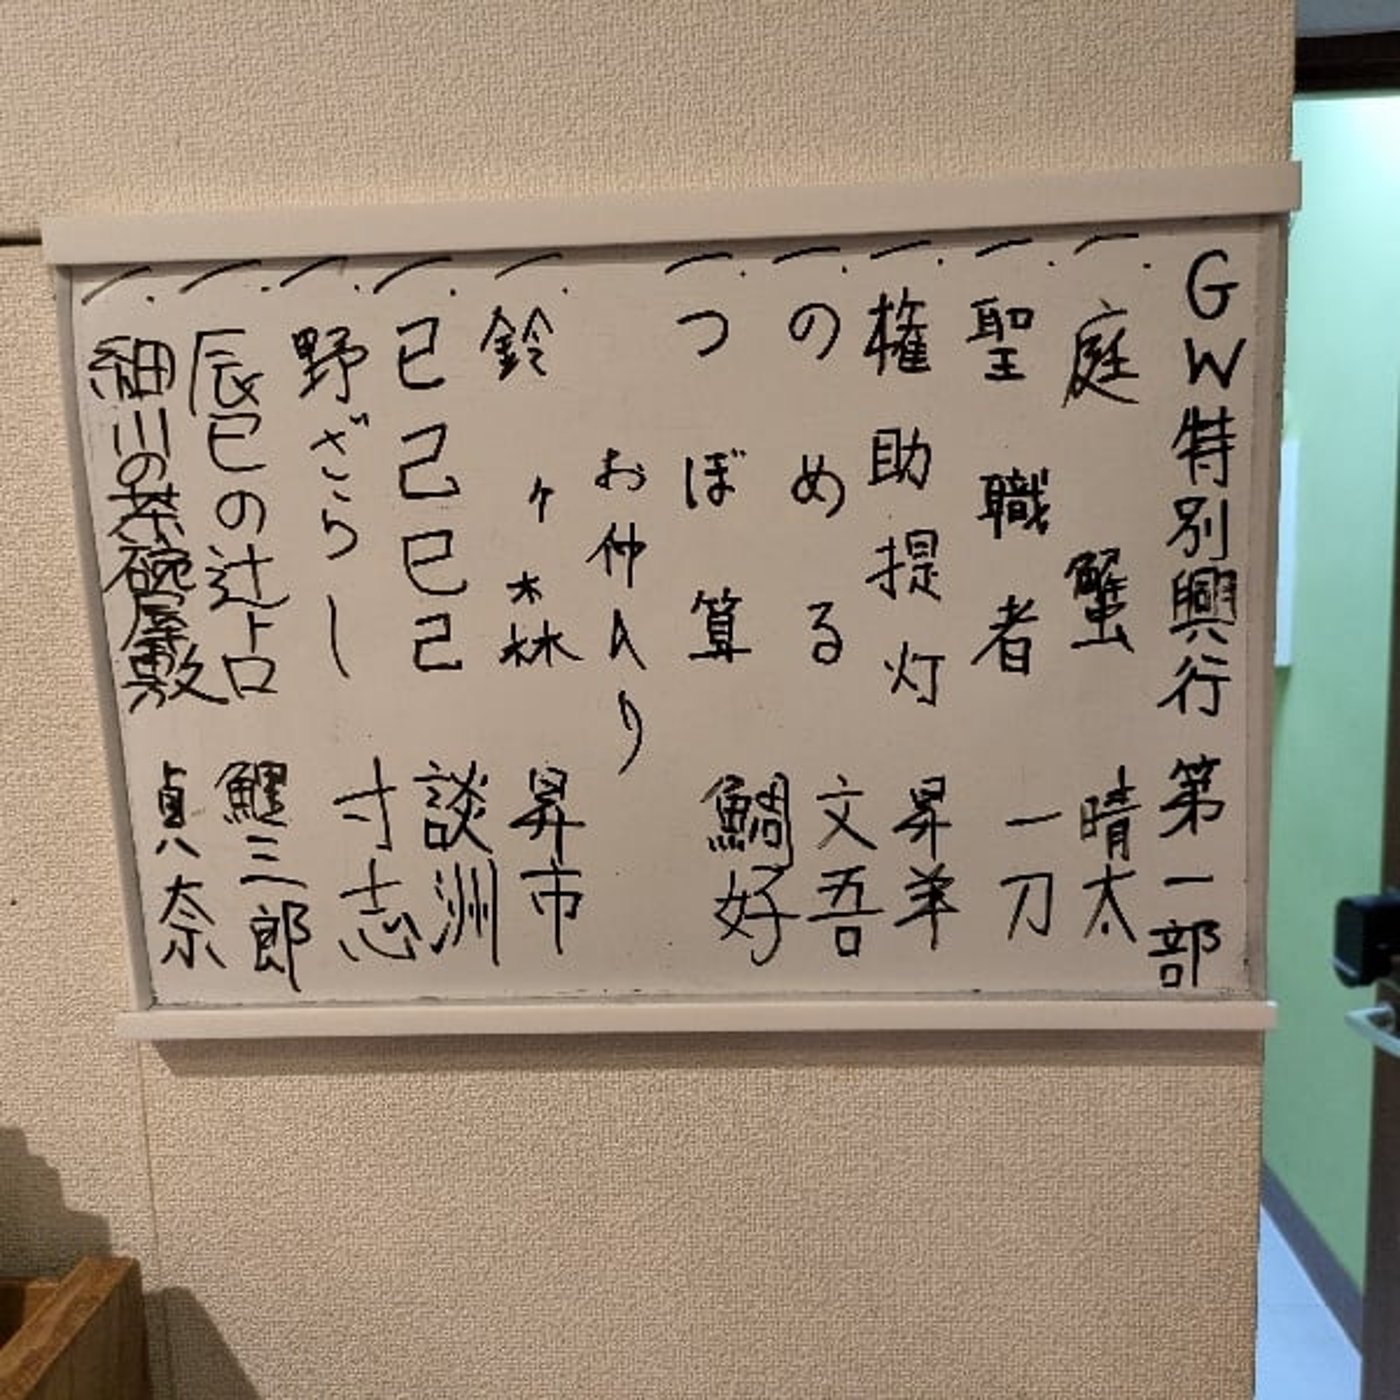 GW特別興行 第一部
一. 庭蟹 晴太
一. 聖職者 一刀
一. 権助提灯 昇羊
一. のめる 文吾
一. つぼ算 鯛好
お仲入り
一. 鈴ヶ森 昇市
一. 已己巳己 談洲
一. 野ざらし 寸志
一. 辰巳の辻占 鯉三郎
一. 細川の茶碗屋敷 貞奈